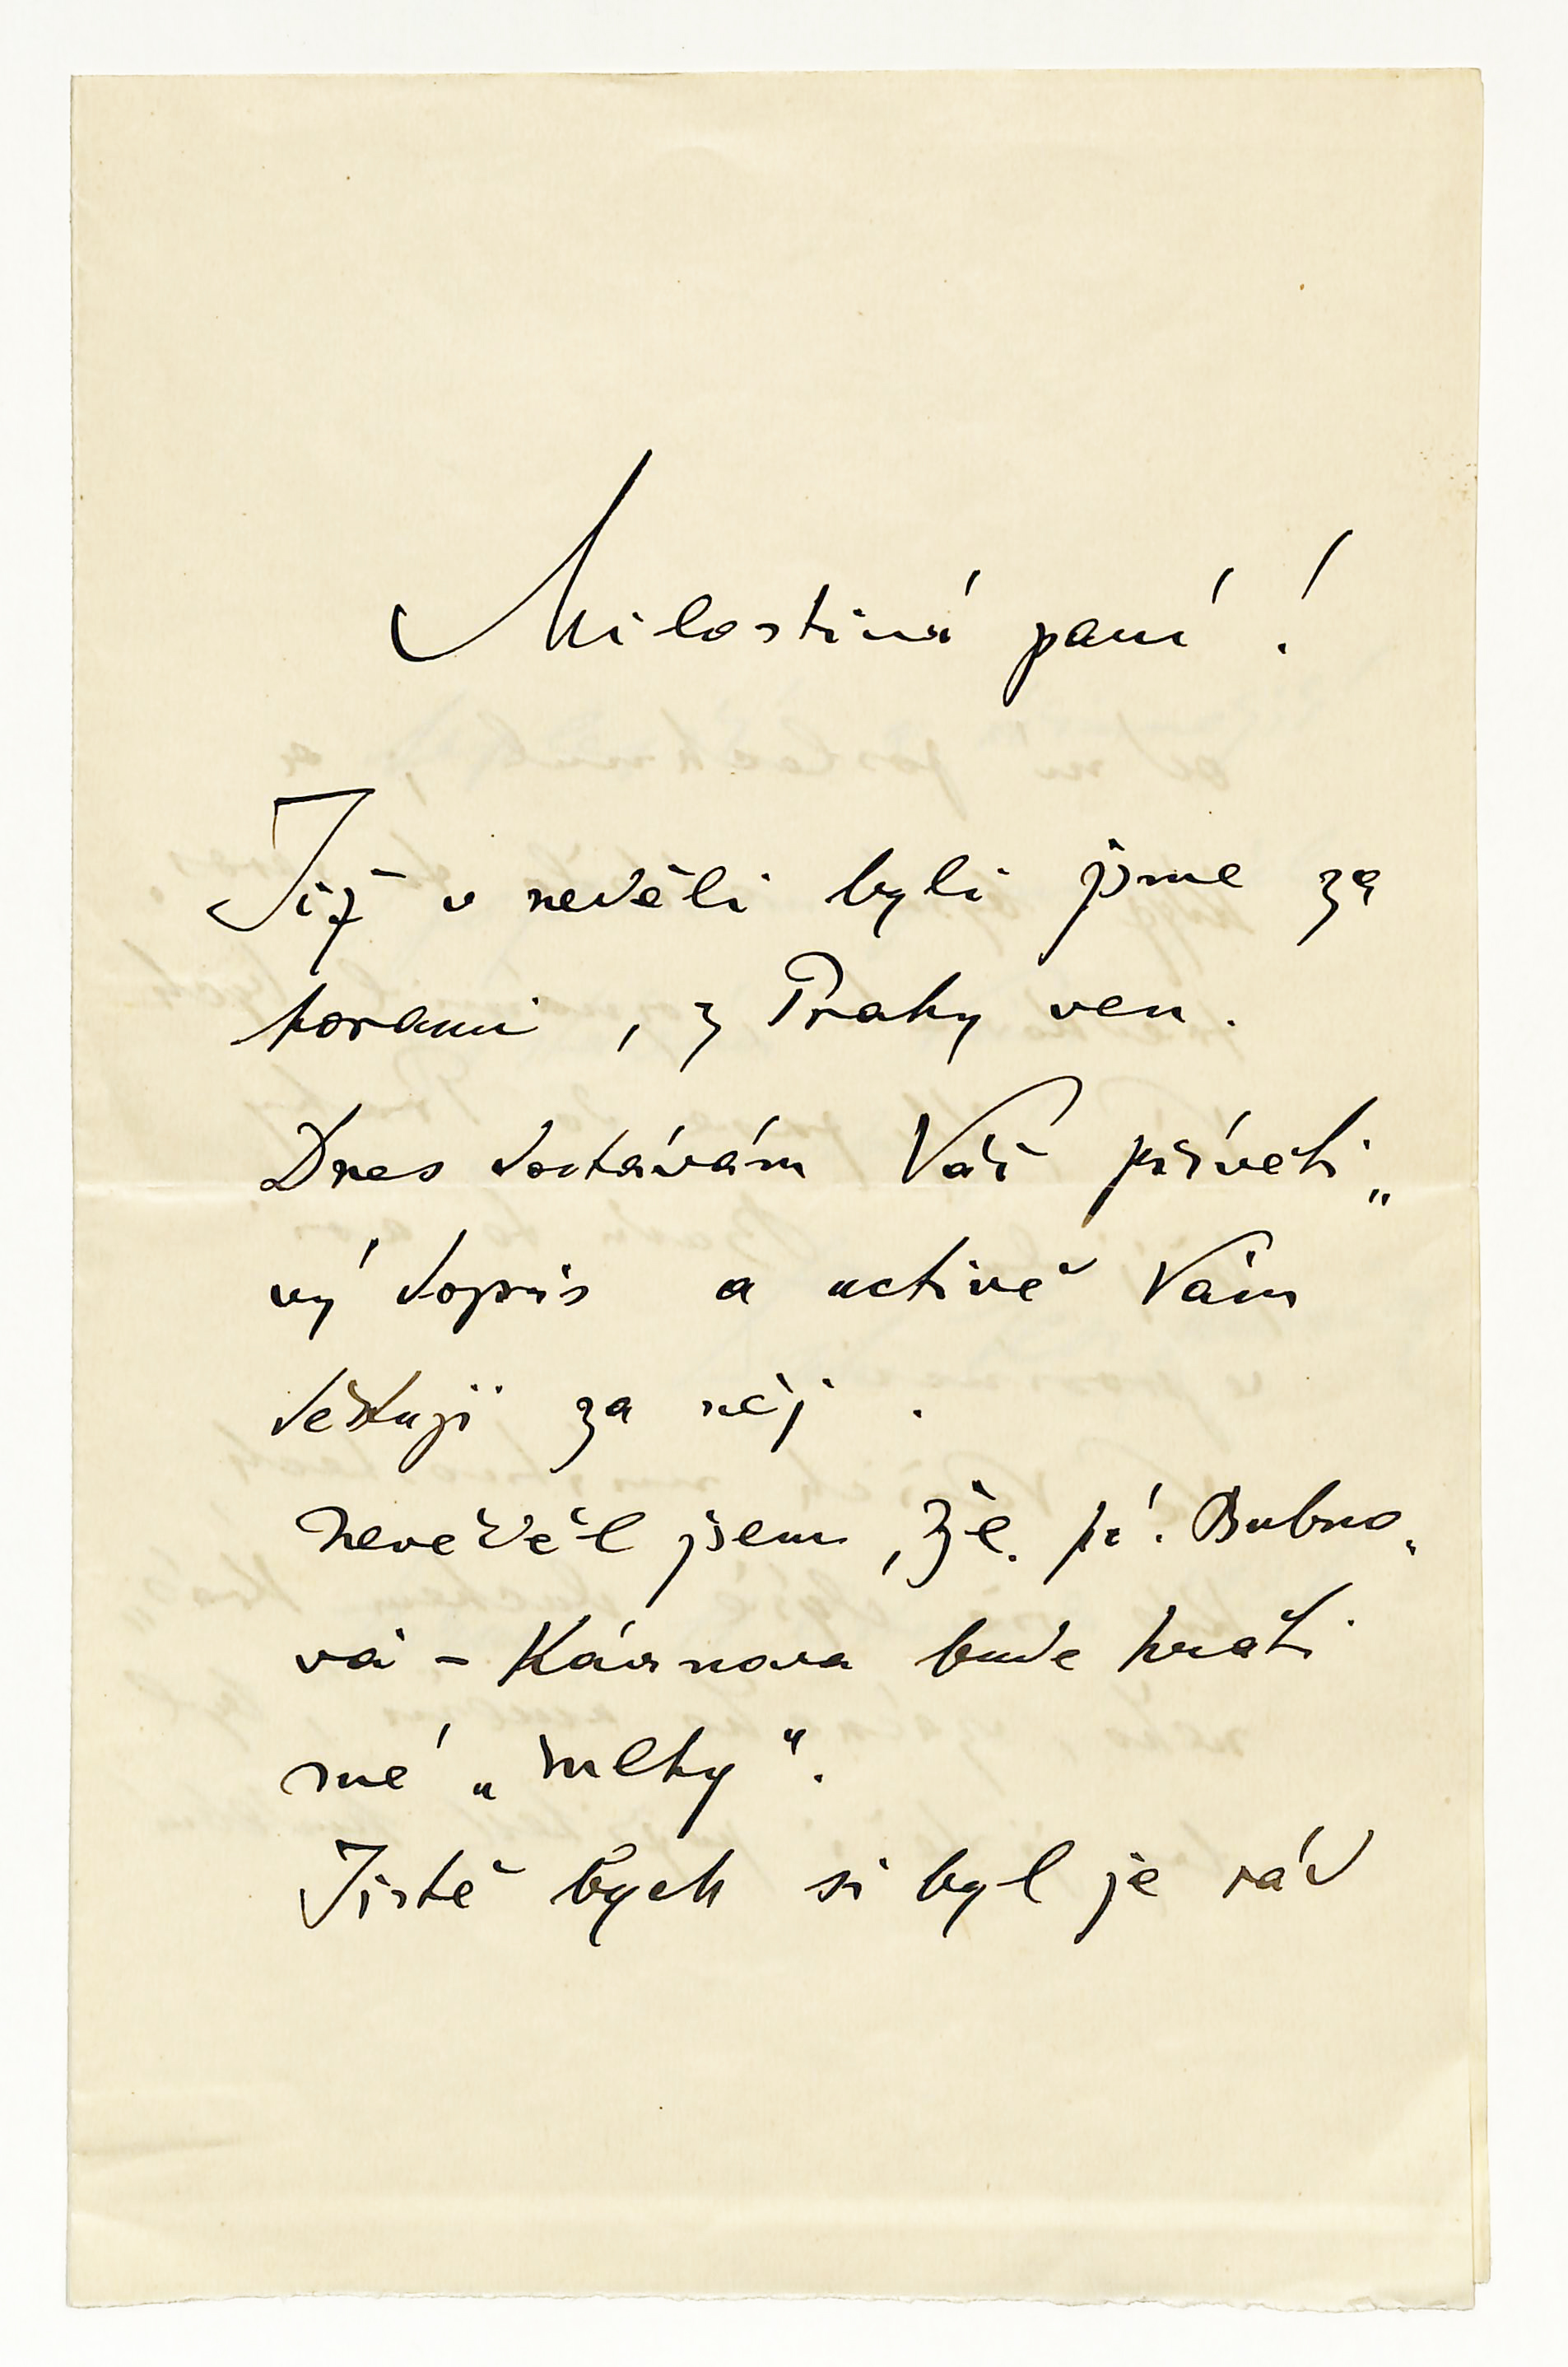 Milostivá paní!
Již v neděli byli jsme za
horami, z Prahy ven.
Dnes dostávám Váš přívěti„
vý dopis a uctivě Vám
děkuji za něj.
Nevěděl jsem, že pí. Bubno„
vá - Kávanova bude hráti
mé „Mlhy“.
Jistě bych si byl je rád